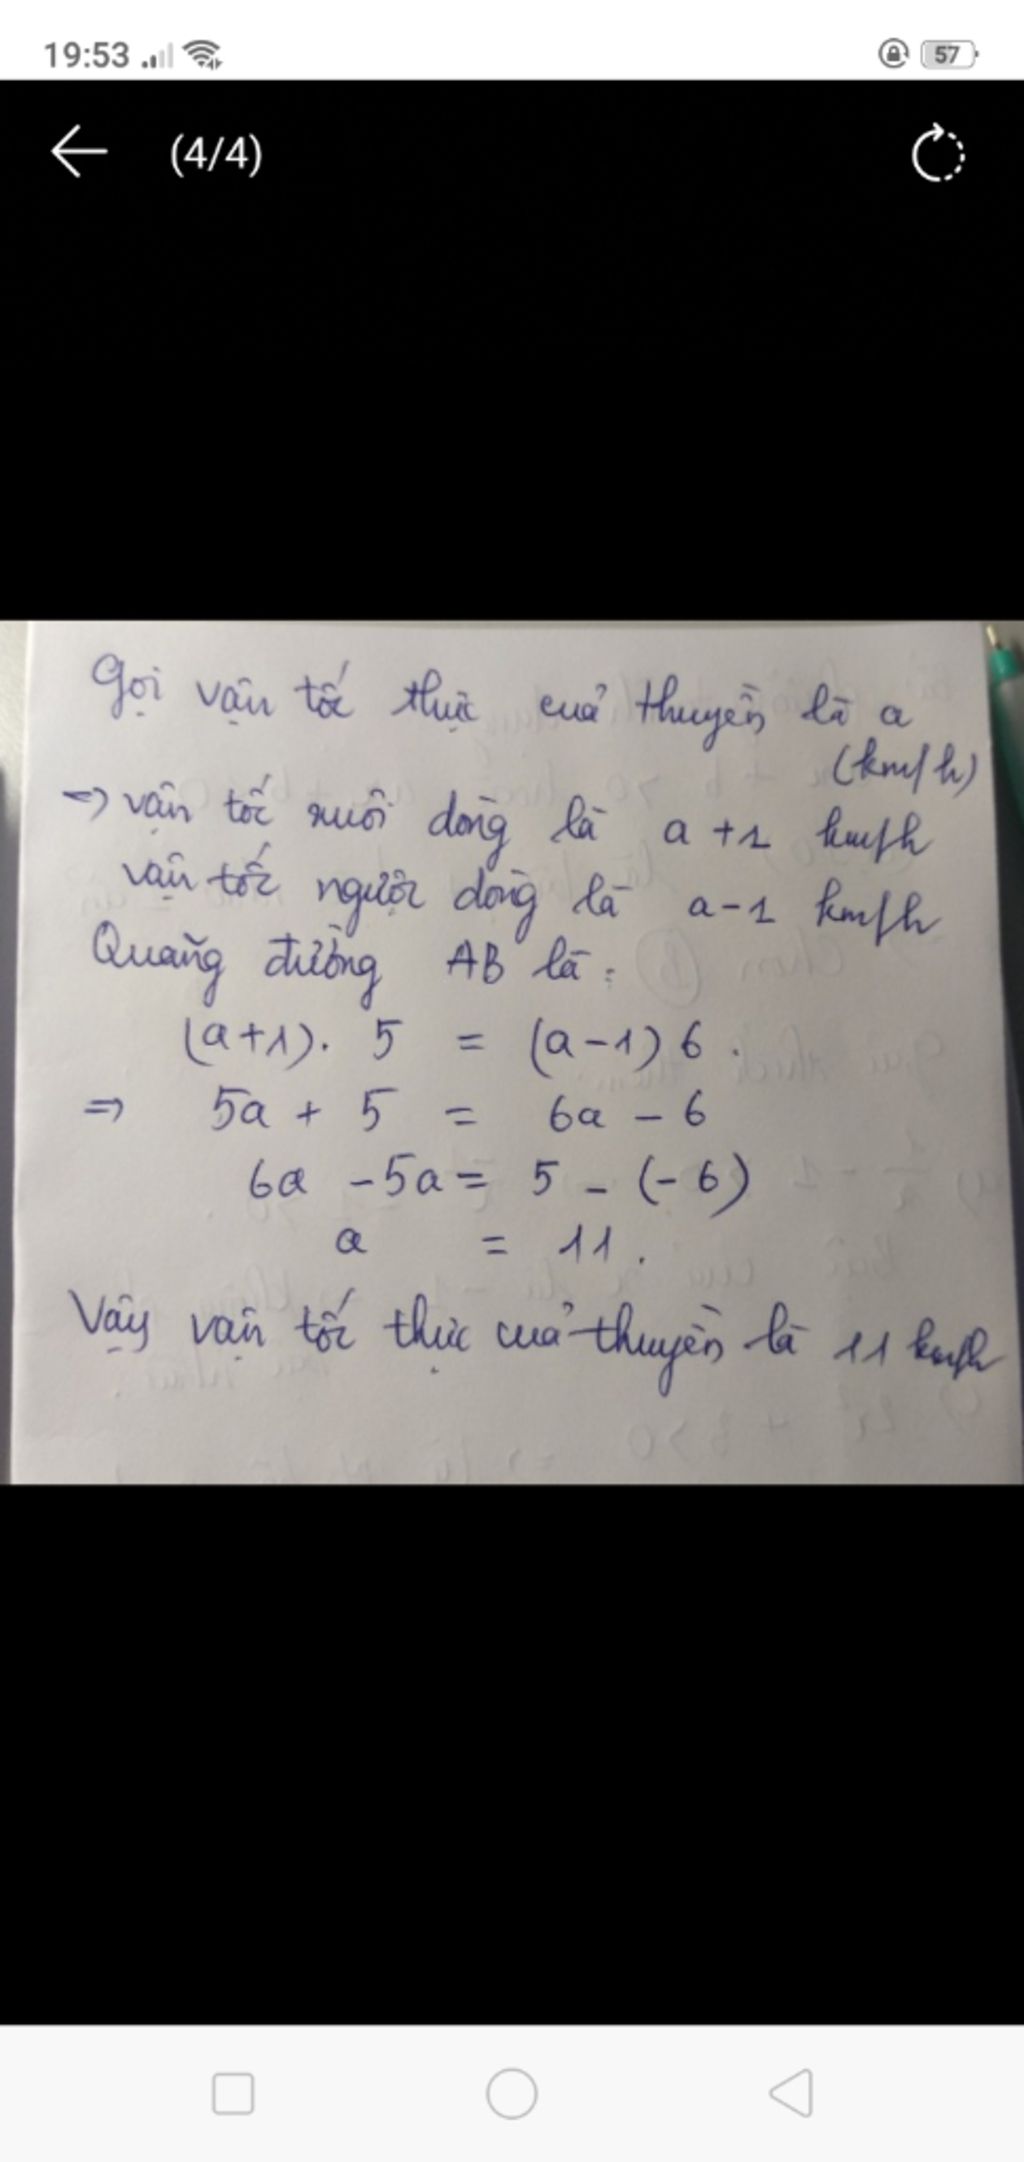 19:53
57
(4/4)
Gọi vận tốc thực của thuyền là a
(km/h)
=> vận tốc xuôi dòng là a +1 km/h
vận tốc ngược dòng là a-1 km/h
Quãng đường AB là:
(a+1). 5 = (a-1) 6.
=> 5a + 5 = 6a - 6
6a - 5a = 5 - (-6)
a = 11.
Vậy vận tốc thực của thuyền là 11 km/h